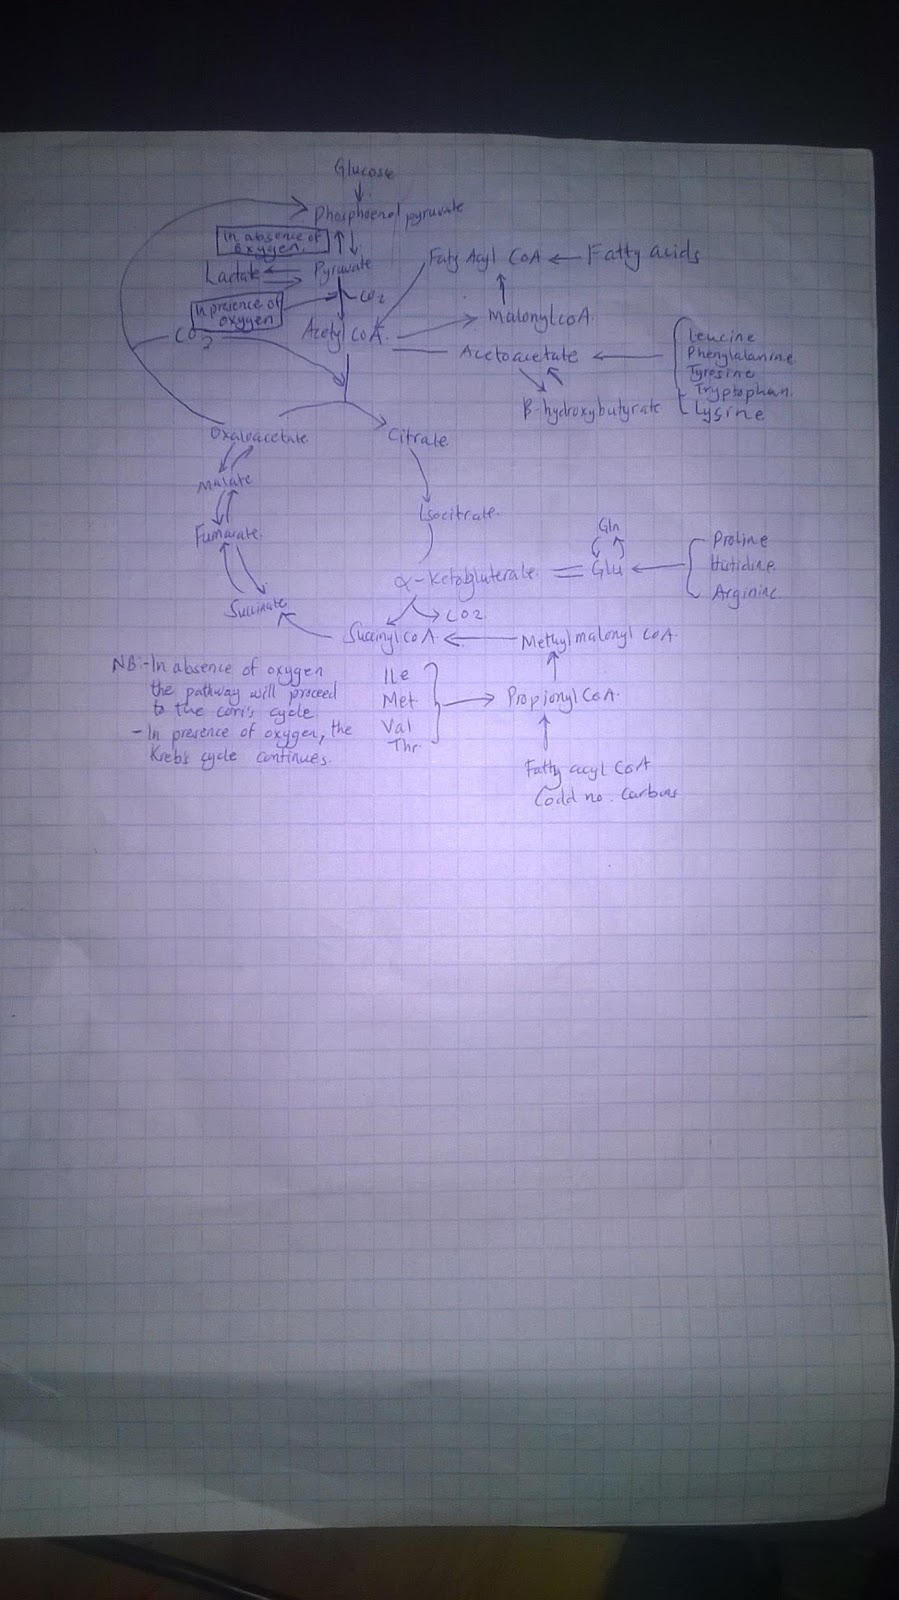 Glucose
Phosphoenol pyruvate
In absence of
oxygen.
Lactate
Pyruvate
Faty Acyl CoA
Fatty acids
In presence of
oxygen
CO2
CO2
Acetyl CoA
Malonyl CoA
Acetoacetate
Leucine
Phenylalanine
Tyrosine
Tryptophan.
Lysine
β-hydroxybutyrate
Oxaloacetate
Citrate
Malate
Isocitrate.
Fumarate
Gln
α-Ketogluterate
Glu
Proline
Histidine
Arginine
Succinate
CO2
Succinyl CoA
Methyl malonyl CoA
NB:-In absence of oxygen
the pathway will proceed
to the cori's cycle
-In presence of oxygen, the
Kreb's cycle continues.
ILe
Met
Val
Thr.
Propionyl CoA.
Fatty acyl CoA
(odd no. carbons